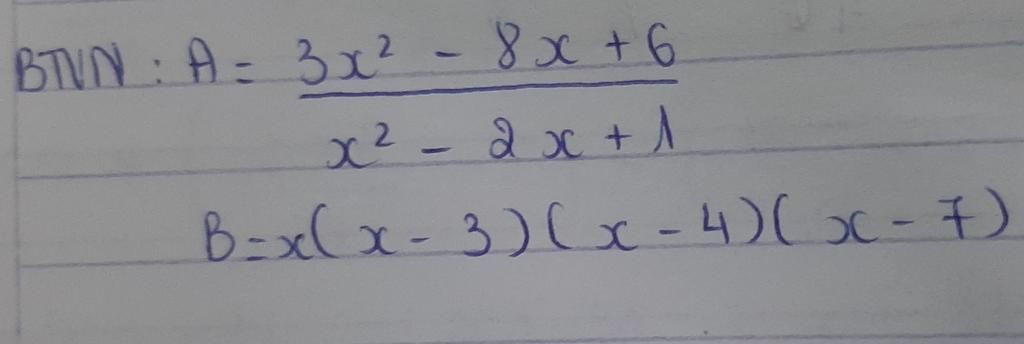 BTNN : A = 3x² - 8x + 6
x² - 2x + 1
B = x(x - 3)(x - 4)(x - 7)